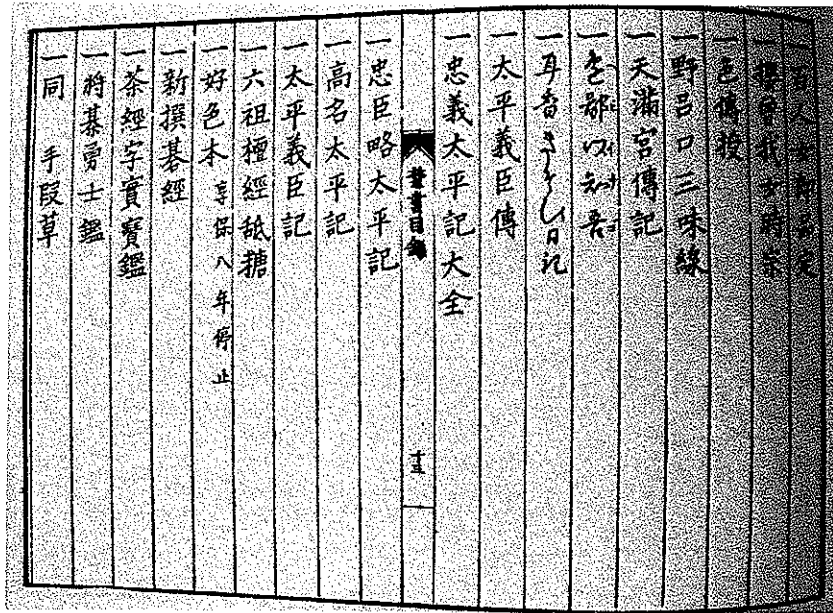 一百人女郎品定
一色傳授
一野呂口三味線
一天滿宮傳記
一
一耳 日記
一太平義臣傳
一忠義太平記大全
禁書目錄 十五
一忠臣略太平記
一高名太平記
一太平義臣記
一六祖檀經舐糖
一好色本 享保八年停止
一新撰碁經
一茶經字實寶鑑
一將棊勇士鑑
一同 手段草